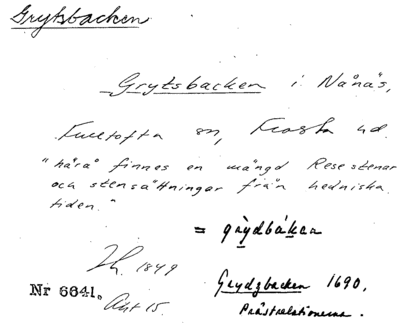 Grytsbacken
Grytsbacken i Nånäs,
Fulltofta sn, Frosta hd.
"härå finnes en mängd Resestenar
och stensättningar från hedniska
tiden."
= gạ̀ydbákan
1849
Nr 6641. Akt 15.
Greydzbacken 1690.
Prästrelationerna.